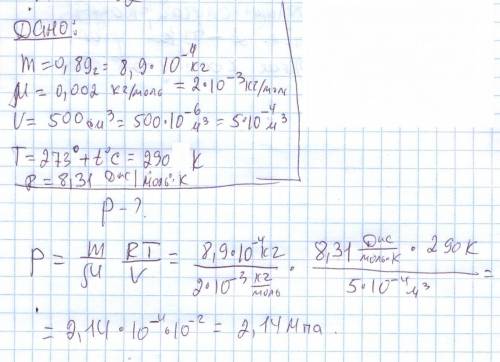 Дано:
m = 0,89г = 8,9·10⁻⁴ кг
μ = 0,002 кг/моль = 2·10⁻³ кг/моль
V = 500 см³ = 500·10⁻⁶ м³ = 5·10⁻⁴ м³
T = 273° + t°C = 290 К
R = 8,31 Дж/моль·К
P - ?
P = m/μ RT/V = 8,9·10⁻⁴ кг / 2·10⁻³ кг/моль · 8,31 Дж/моль·К · 290К / 5·10⁻⁴ м³ =
= 2,14·10⁻⁴·10⁻² = 2,14 Мпа.